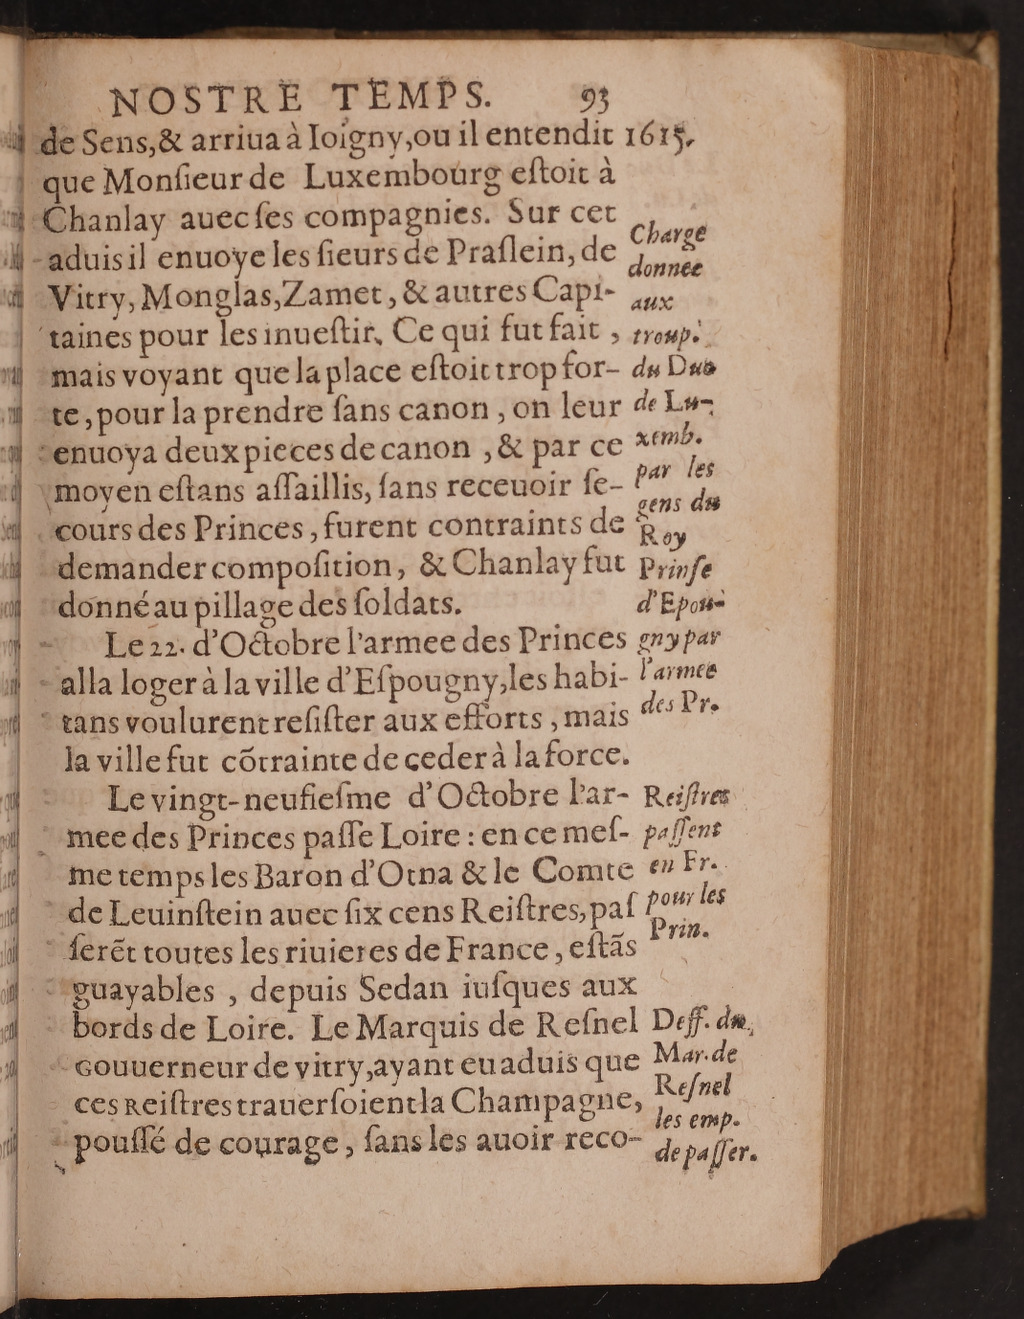 NOSTRE TEMPS. 93
de Sens,& arriua à Ioigny,ou il entendit 1615.
que Monſieur de Luxembourg eſtoit à
Chanlay auec ſes compagnies. Sur cet
aduis il enuoye les ſieurs de Praſlein, de
Vitry, Monglas, Zamet, & autres Capi-
taines pour les inueſtir, Ce qui fut fait ,
mais voyant que la place eſtoit trop for-
te, pour la prendre ſans canon , on leur
enuoya deux pieces de canon , & par ce
moyen eſtans aſſaillis, ſans receuoir ſe-
cours des Princes, furent contraints de
demander compoſition, & Chanlay fut
donné au pillage des ſoldats.
Le 22. d'Octobre l'armee des Princes
alla loger à la ville d'Eſpougny,les habi-
tans voulurent reſiſter aux efforts , mais
la ville fut cõtrainte de ceder à la force.
Le vingt-neufieſme d'Octobre l'ar-
mee des Princes paſſe Loire : en ce meſ-
me temps les Baron d'Otna & le Comte
de Leuinſtein auec ſix cens Reiſtres, paſ
ſerẽt toutes les riuieres de France , eſtãs
guayables , depuis Sedan iuſques aux
bords de Loire. Le Marquis de Reſnel
Gouuerneur de vitry,ayant eu aduis que
ces Reiſtres trauerſoient la Champagne,
pouſſé de courage , ſans les auoir reco-
Charge
donnée
aux
troup.
du Duc
de Lu-
xemb.
par les
gens du
Roy
Prinſe
d'Epou-
gny par
l'armee
des Pr.
Reiſtres
paſſent
en Fr.
pour les
Prin.
Deff. du
Mar. de
Reſnel
les emp.
de paſſer.